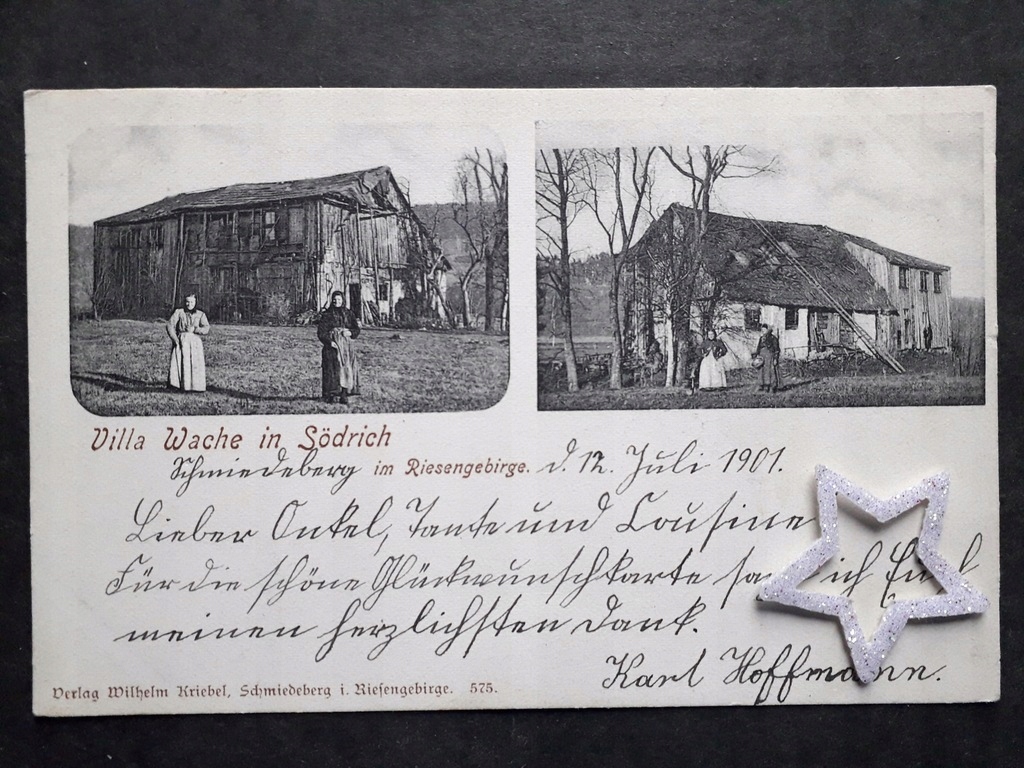 Villa Wache in Södrich
Schmiedeberg im Riesengebirge. d. 12. Juli 1901.
Lieber Onkel, Tante und Cousine
Für die schöne Glückwunschkarte ich
meinen herzlichsten Dank.
Karl Hoffmann.
Verlag Wilhelm Kriebel, Schmiedeberg i. Riesengebirge. 575.